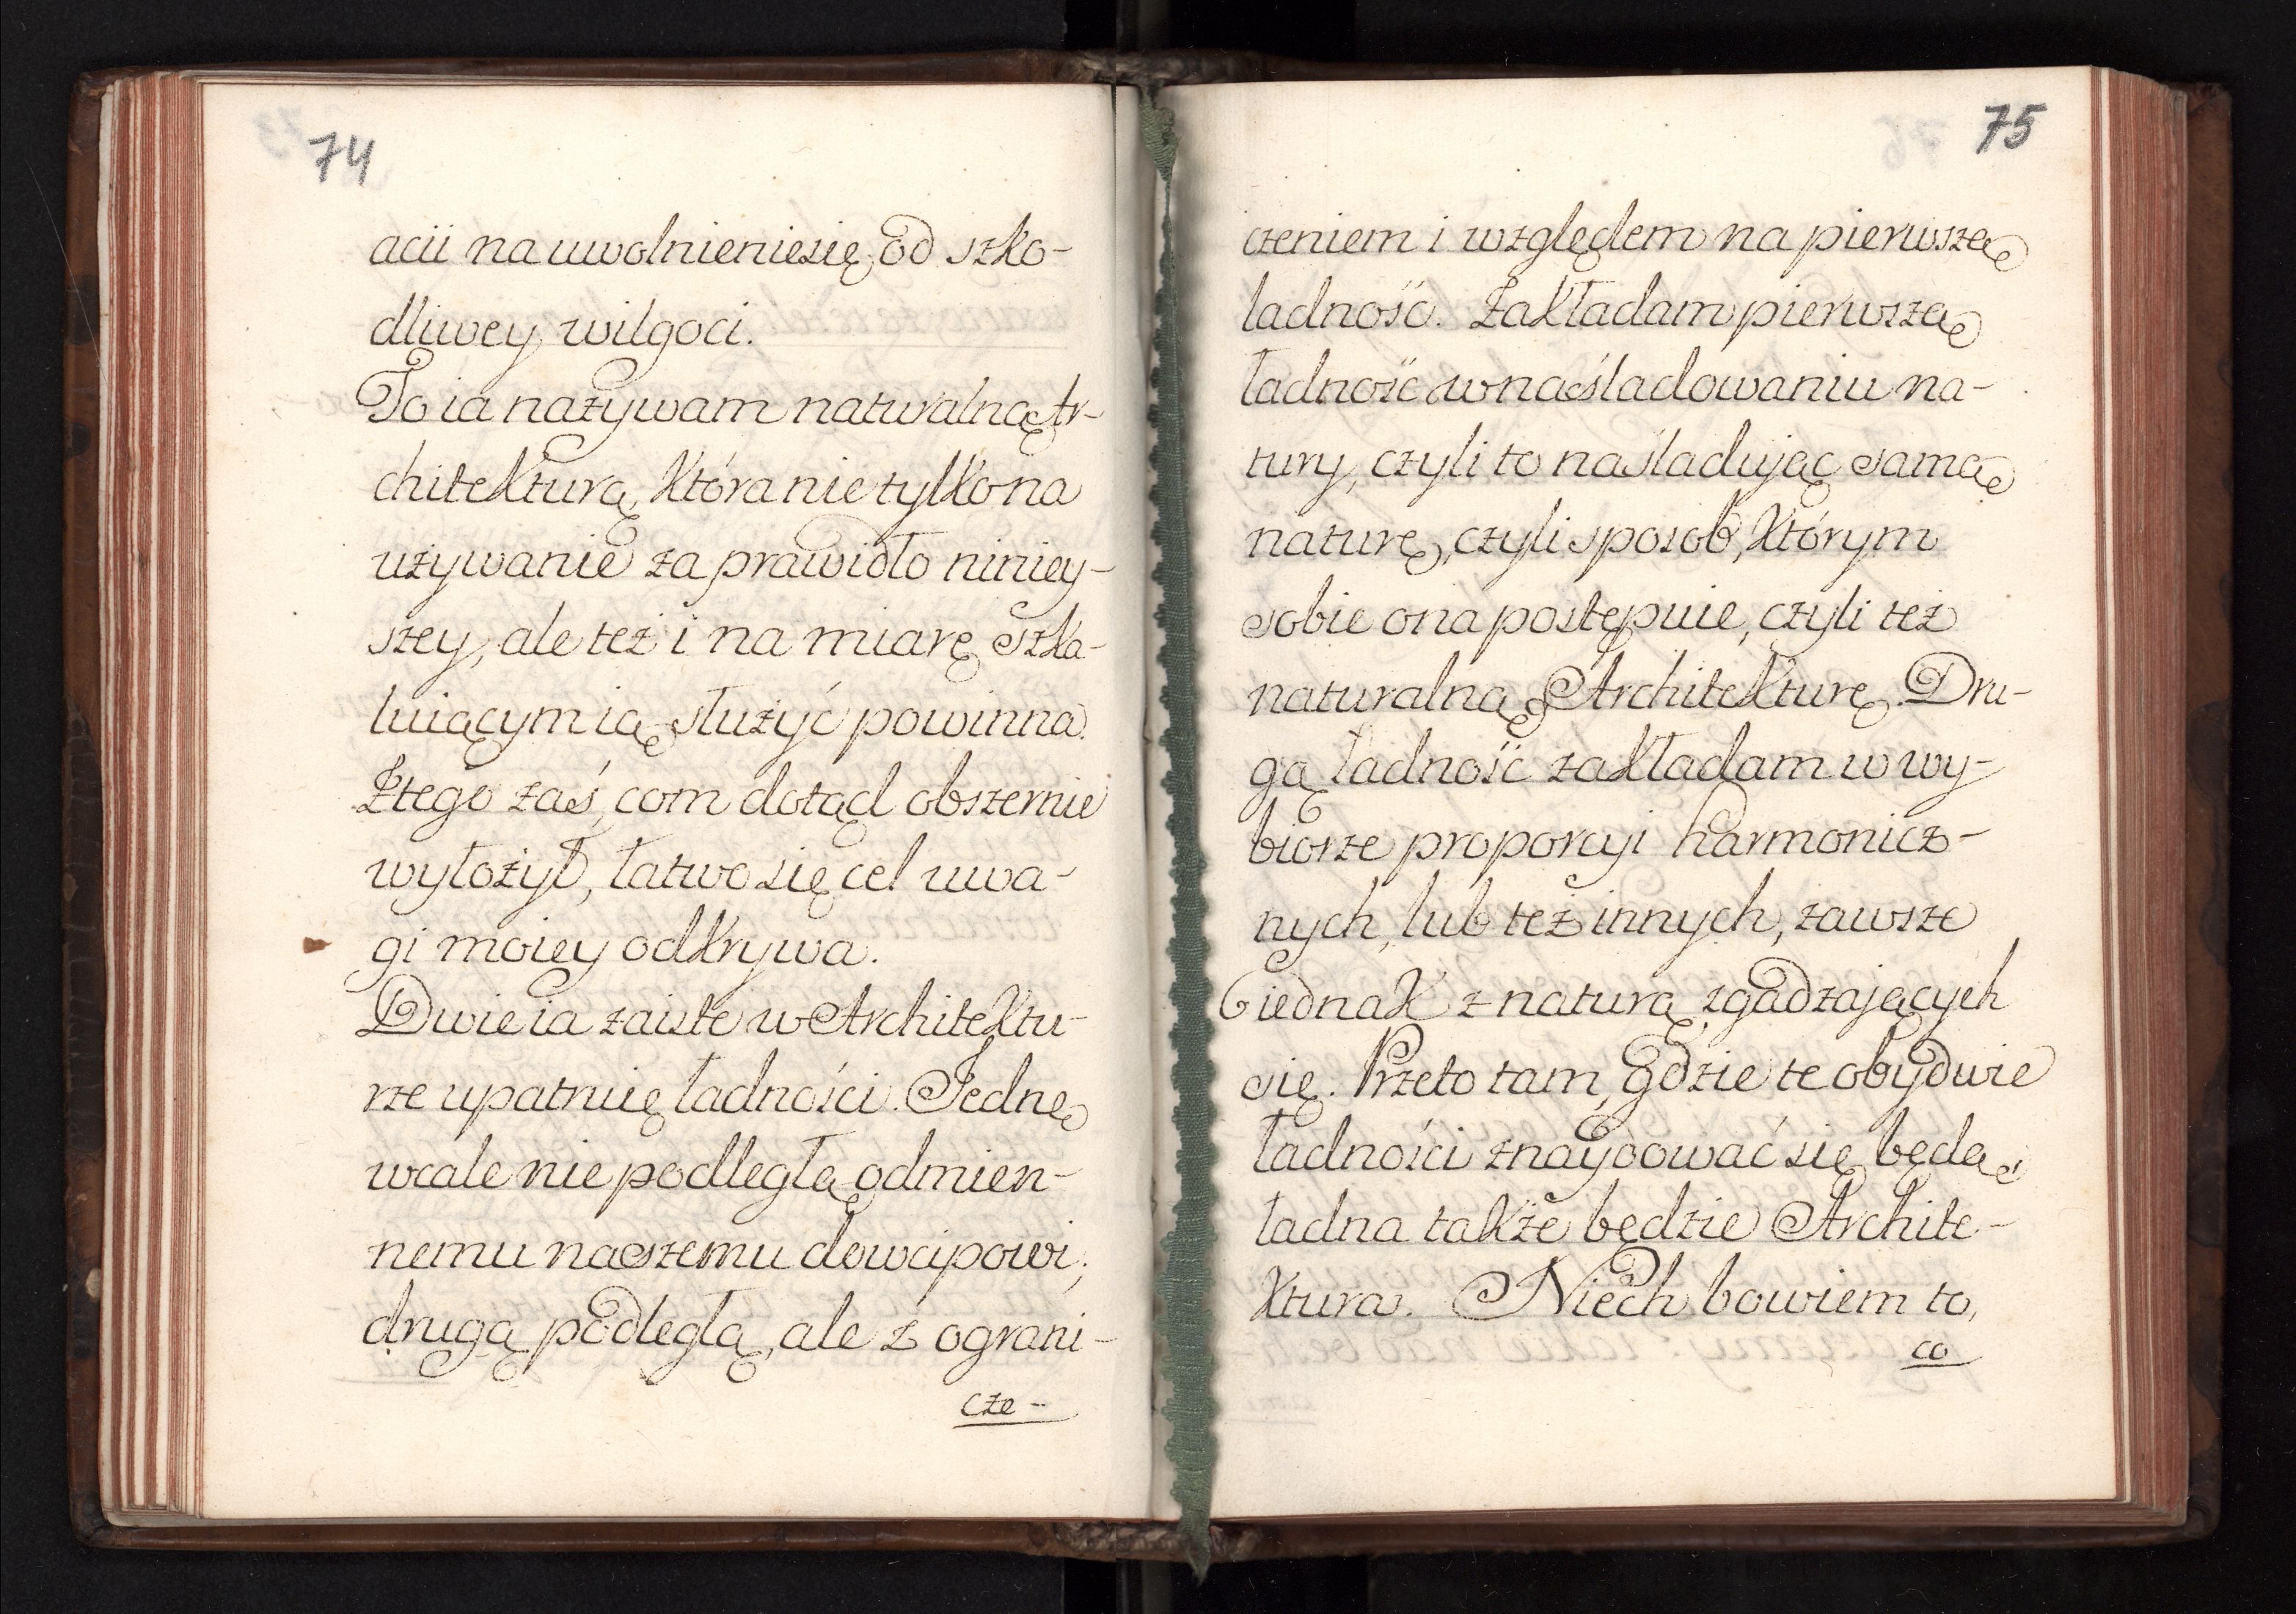 74
acii na uwolnienie się od szko-
dliwey wilgoci.
To ia nazywam naturalną Ar-
chitekturą, która nie tylko na
używanie za prawidło niniey-
szey, ale też i na miarę szka-
luiącym ią służyć powinna.
Z tego zaś, com dotąd obszernie
wyłożył, łatwo się cel uwa-
gi moiey odkrywa.
Dwie ia zaiste w Architektu-
rze upatruię ładności. Jednę
wcale nie podległą odmien-
nemu naszemu dowcipowi;
drugą podległą, ale z ograni-
cze-
75
czeniem i względem na pierwszą
ladność. Zakładam pierwszą
ładność w naśladowaniu na-
tury, czyli to naśladując samą
naturę, czyli sposob, którym
sobie ona postępuie, czyli też
naturalną Architekturę. Dru-
gą ładność zakładam w wy-
biorze proporcyi harmonicz-
nych, lub też innych, zawsze
iednak z naturą zgadzających
się. Przeto tam, gdzie te obydwie
ładności znaydować się będą,
ładna także będzie Archite-
ktura. Niech bowiem to,
co